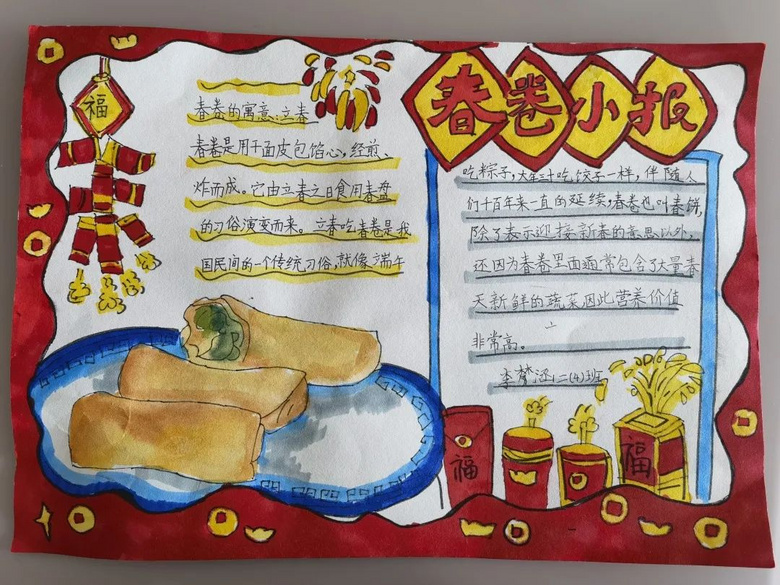 春卷小报
福
春卷的寓意：立春
春卷是用干面皮包馅心，经煎、
炸而成。它由立春之日食用春盘
的习俗演变而来。立春吃春卷是我
国民间的一个传统习俗，就像端午
吃粽子，大年三十吃饺子一样，伴随人
们千百年来一直的延续，春卷也叫春饼，
除了表示迎接新春的意思以外，
还因为春卷里面通常包含了大量春
天新鲜的蔬菜因此营养价值
非常高。
李梦涵二(4)班
福
福